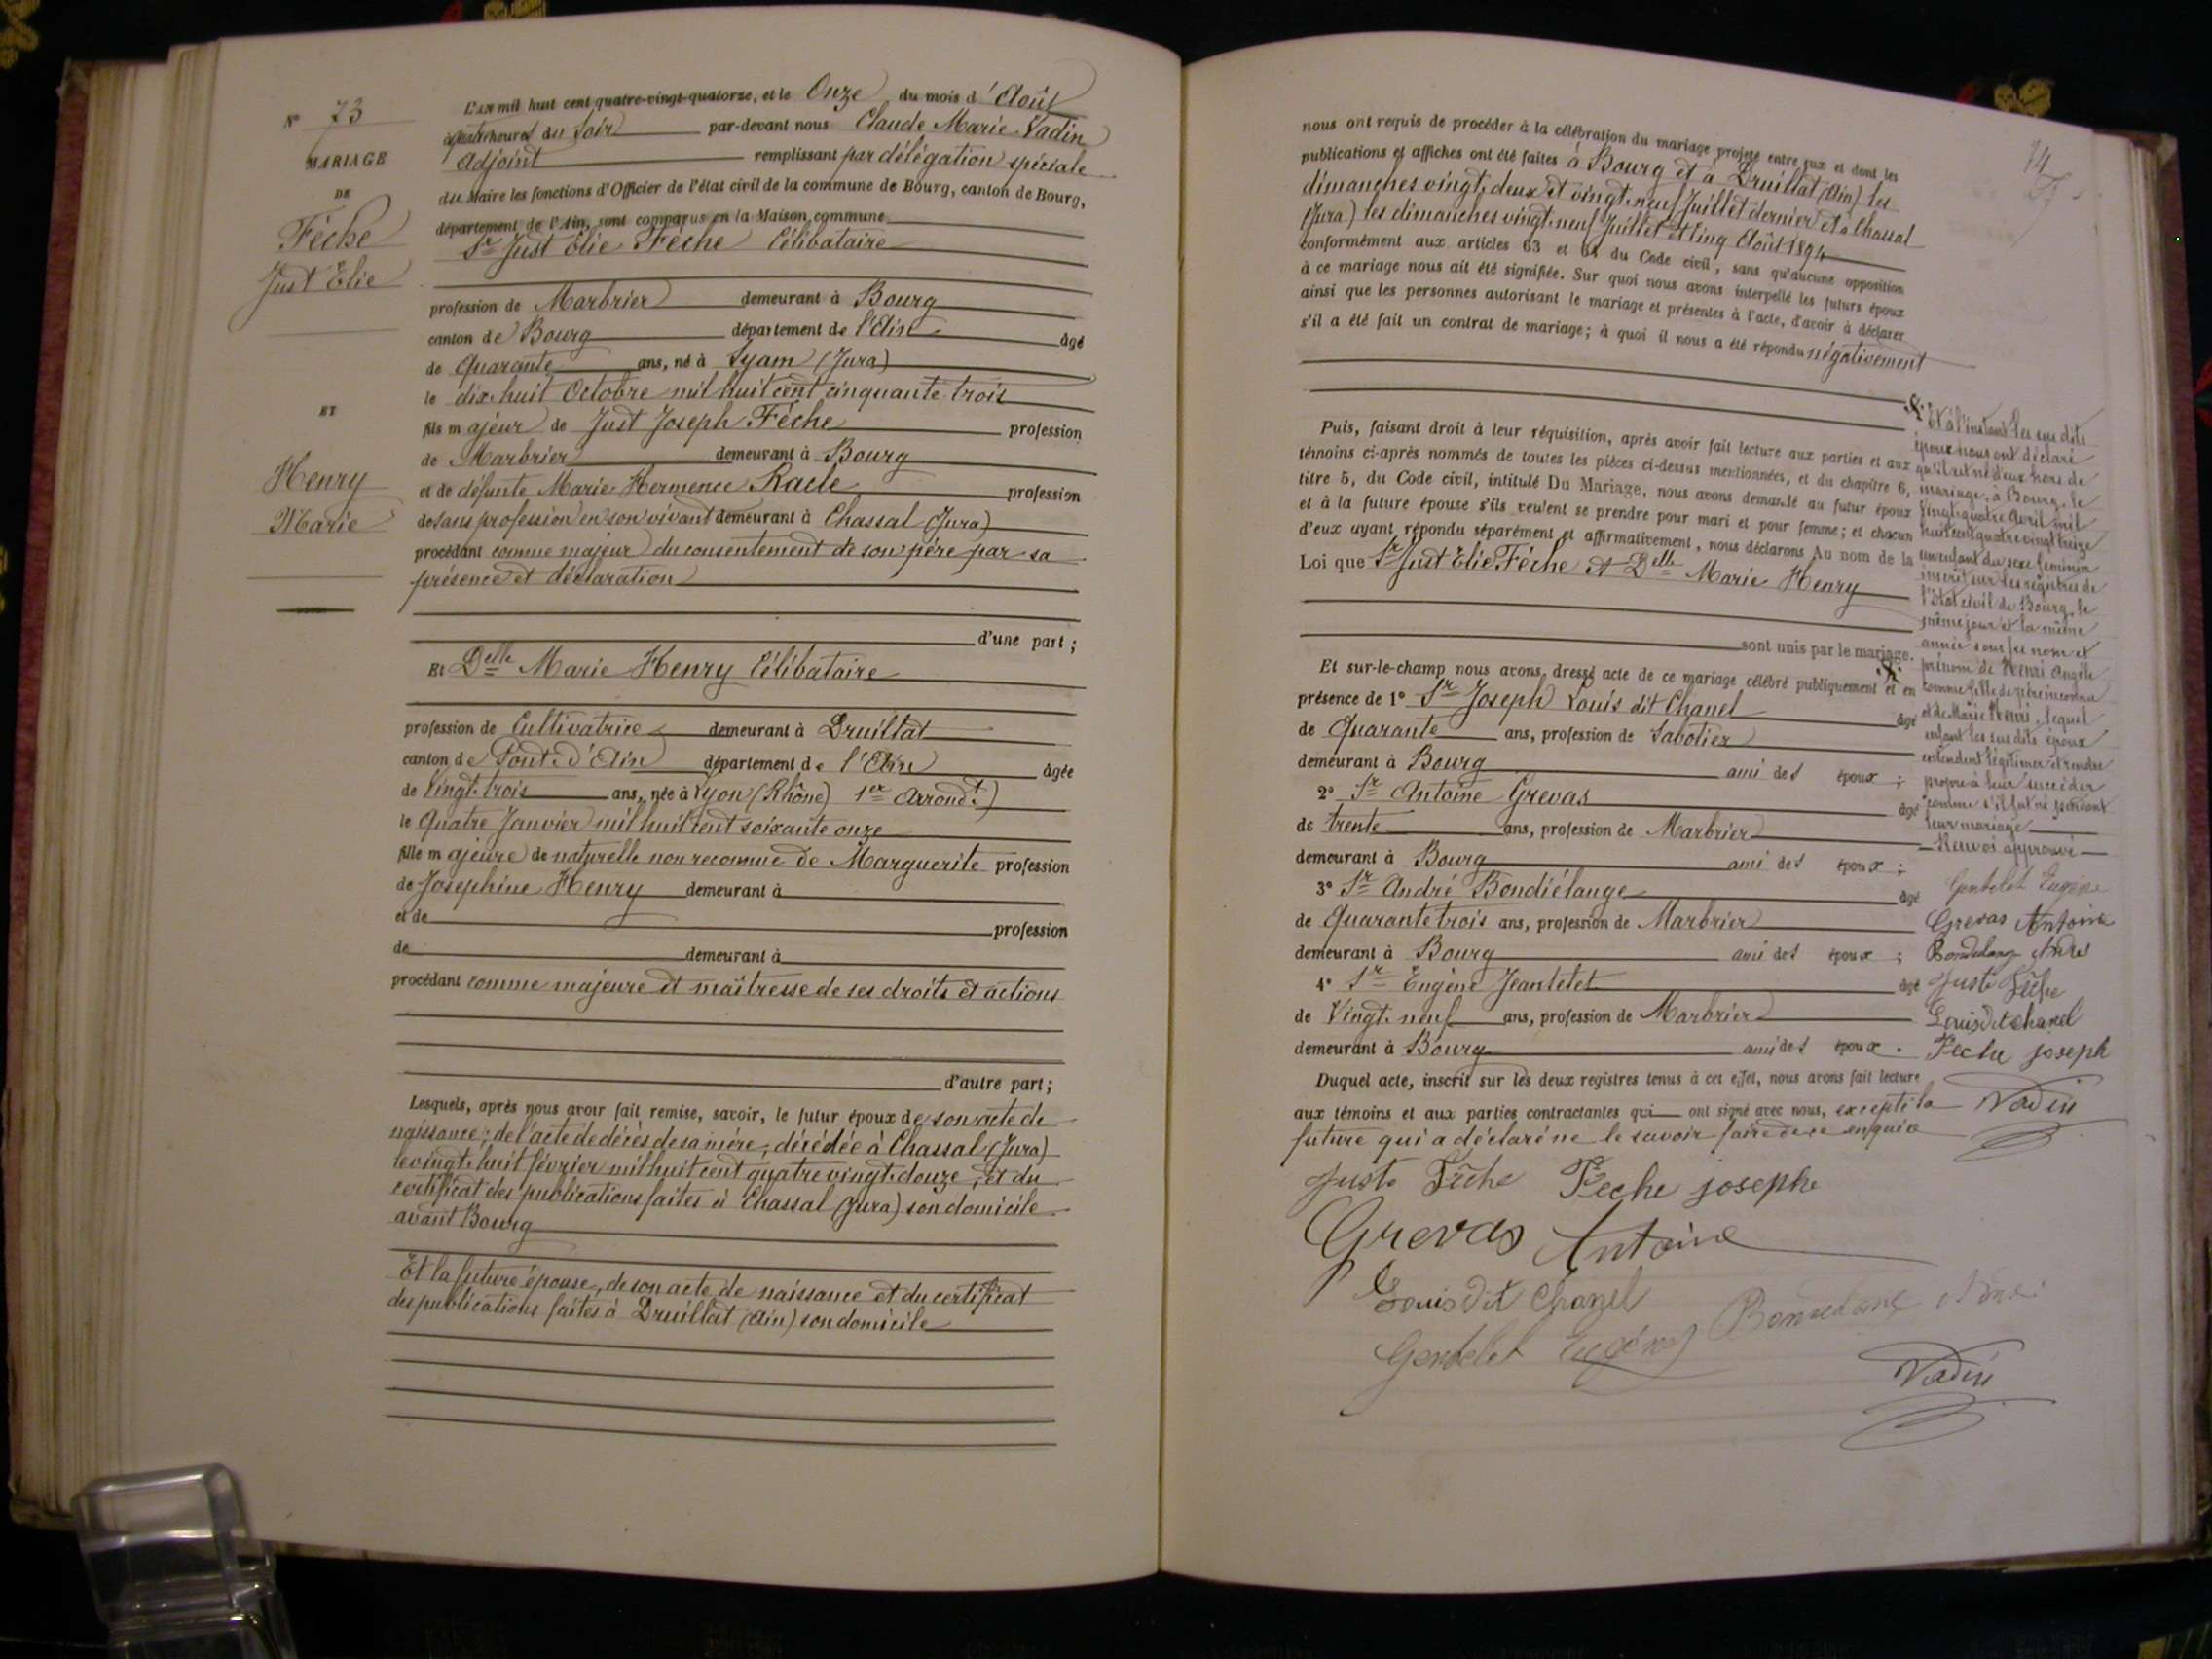 N° 73
MARIAGE
DE
Féche
Just Elie
ET
Henry
Marie
L'an mil huit cent quatre-vingt-quatorze, et le Onze du mois d'Août
à quatre heures du Soir par-devant nous Claude Marie Vadin
Adjoint remplissant par délégation spéciale
du Maire les fonctions d'Officier de l'état civil de la commune de Bourg, canton de Bourg,
département de l'Ain, sont comparus en la Maison commune
Sr Just Elie Féche Célibataire
profession de Marbrier demeurant à Bourg
canton de Bourg département de l'Ain âgé
de Quarante ans, né à Syam (Jura)
le dix-huit Octobre mil huit cent cinquante trois
fils majeur de Just Joseph Féche profession
de Marbrier demeurant à Bourg
et de défunte Marie Hermence Racle profession
de sans profession en son vivant demeurant à Chassal (Jura)
procédant comme majeur du consentement de son père par sa
présence et déclaration
d'une part ;
Et Delle Marie Henry Célibataire
profession de Cultivatrice demeurant à Druillat
canton de Pont-d'Ain département de l'Ain âgée
de Vingt-trois ans, née à Lyon (Rhône) 1er Arrondt)
le Quatre Janvier mil huit cent soixante onze
fille majeure de naturelle non reconnue de Marguerite profession
de Josephine Henry demeurant à
et de profession
de demeurant à
procédant comme majeure et maîtresse de ses droits et actions
d'autre part ;
Lesquels, après nous avoir fait remise, savoir, le futur époux de son acte de
naissance ; de l'acte de décès de sa mère, décédée à Chassal (Jura)
le vingt-huit février mil huit cent quatre vingt-douze, et du
certificat des publications faites à Chassal (Jura) son domicile
avant Bourg
Et la future épouse, de son acte de naissance et du certificat
des publications faites à Druillat (Ain) son domicile
74
nous ont requis de procéder à la célébration du mariage projeté entre eux et dont les
publications et affiches ont été faites à Bourg et à Druillat (Ain) les
dimanches vingt-deux et vingt-neuf Juillet dernier et à Chassal
(Jura) les dimanches vingt-neuf Juillet et Cinq Août 1894
conformément aux articles 63 et 64 du Code civil, sans qu'aucune opposition
à ce mariage nous ait été signifiée. Sur quoi nous avons interpellé les futurs époux
ainsi que les personnes autorisant le mariage et présentes à l'acte, d'avoir à déclarer
s'il a été fait un contrat de mariage ; à quoi il nous a été répondu négativement
Puis, faisant droit à leur réquisition, après avoir fait lecture aux parties et aux
témoins ci-après nommés de toutes les pièces ci-dessus mentionnées, et du chapitre 6,
titre 5, du Code civil, intitulé Du Mariage, nous avons demandé au futur époux
et à la future épouse s'ils veulent se prendre pour mari et pour femme ; et chacun
d'eux ayant répondu séparément et affirmativement, nous déclarons Au nom de la
Loi que Sr Just Elie Féche et Delle Marie Henry
sont unis par le mariage.
Et sur-le-champ nous avons dressé acte de ce mariage célébré publiquement et en
présence de 1° Sr Joseph Louis dit Chanel âgé
de Quarante ans, profession de Sabotier
demeurant à Bourg ami des époux ;
2° Sr Antoine Grevas âgé
de trente ans, profession de Marbrier
demeurant à Bourg ami des époux ;
3° Sr André Bondiélange âgé
de Quarante trois ans, profession de Marbrier
demeurant à Bourg ami des époux ;
4° Sr Eugène Jeantelet âgé
de Vingt-neuf ans, profession de Marbrier
demeurant à Bourg ami des époux.
Duquel acte, inscrit sur les deux registres tenus à cet effet, nous avons fait lecture
aux témoins et aux parties contractantes qui ont signé avec nous, excepté la
future qui a déclaré ne le savoir faire de ce enquise
Juste Féche Féche joseph
Grevas Antoine
Louis Dit Chanel
Gentelet Eugène
Vadin
Et à l'instant les sus dits
époux nous ont déclaré
qu'il est né d'eux hors de
mariage, à Bourg, le
Vingt-quatre Avril mil
huit cent quatre vingt treize
un enfant du sexe féminin
inscrit sur les registres de
l'Etat civil de Bourg, le
même jour et la même
année sous les nom et
prénom de Henri Angèle
comme fille de père inconnu
et de Marie Henri, lequel
enfant les sus dits époux
entendent légitimer et rendre
propre à leur succéder
comme s'il fut né pendant
leur mariage
Renvoi approuvé
Gentelet Eugène
Grevas Antoine
Bondelang André
Juste Féche
Louis Dit Chanel
Féche joseph
Vadin